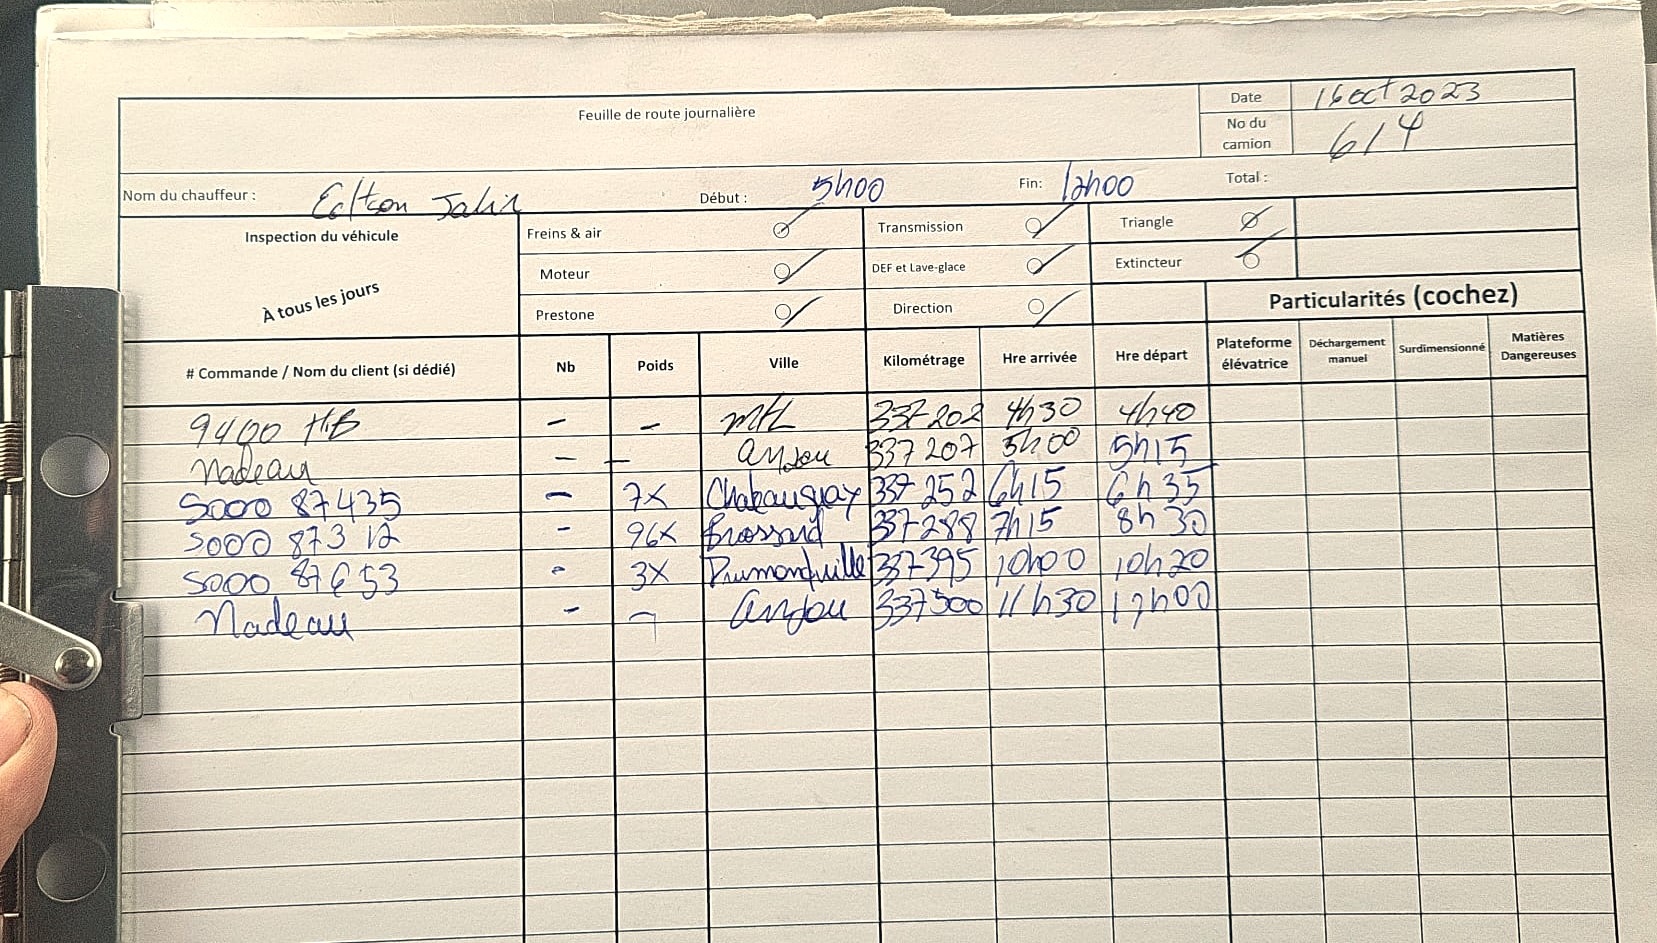 Feuille de route journalière
Date 16 oct 2023
No du camion 614
Nom du chauffeur : Début : 5h00 Fin: 12h00 Total :
Inspection du véhicule
À tous les jours
Freins & air Transmission Triangle
Moteur DEF et Lave-glace Extincteur
Prestone Direction
Particularités (cochez)
# Commande / Nom du client (si dédié) Nb Poids Ville Kilométrage Hre arrivée Hre départ Plateforme élévatrice Déchargement manuel Surdimensionné Matières Dangereuses
9400 HB - - Mtl 337202 4h30 4h40
Nadeau - - Anjou 337207 5h00 5h15
5000 87435 - 7x 337252 6h15 6h35
5000 87312 - 96x Brossard 337288 7h15 8h30
5000 87653 - 3x 337395 10h00 10h20
Nadeau - - Anjou 337500 11h30